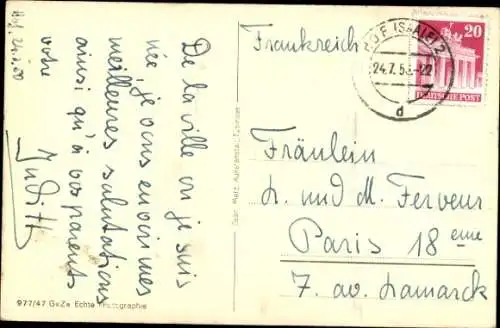 De la ville où je suis
née, je vous envoie mes
meilleures salutations
ainsi qu'à vos parents
votre
Judith
977/47 GeZe Echte Photographie
Gebr. Metz,
Frankreich
HOF (SAALE) 2
24.7.53.-22
d
20
DEUTSCHE POST
Fräulein
L. und M. Ferveur
Paris 18eme
7. av. Lamarck